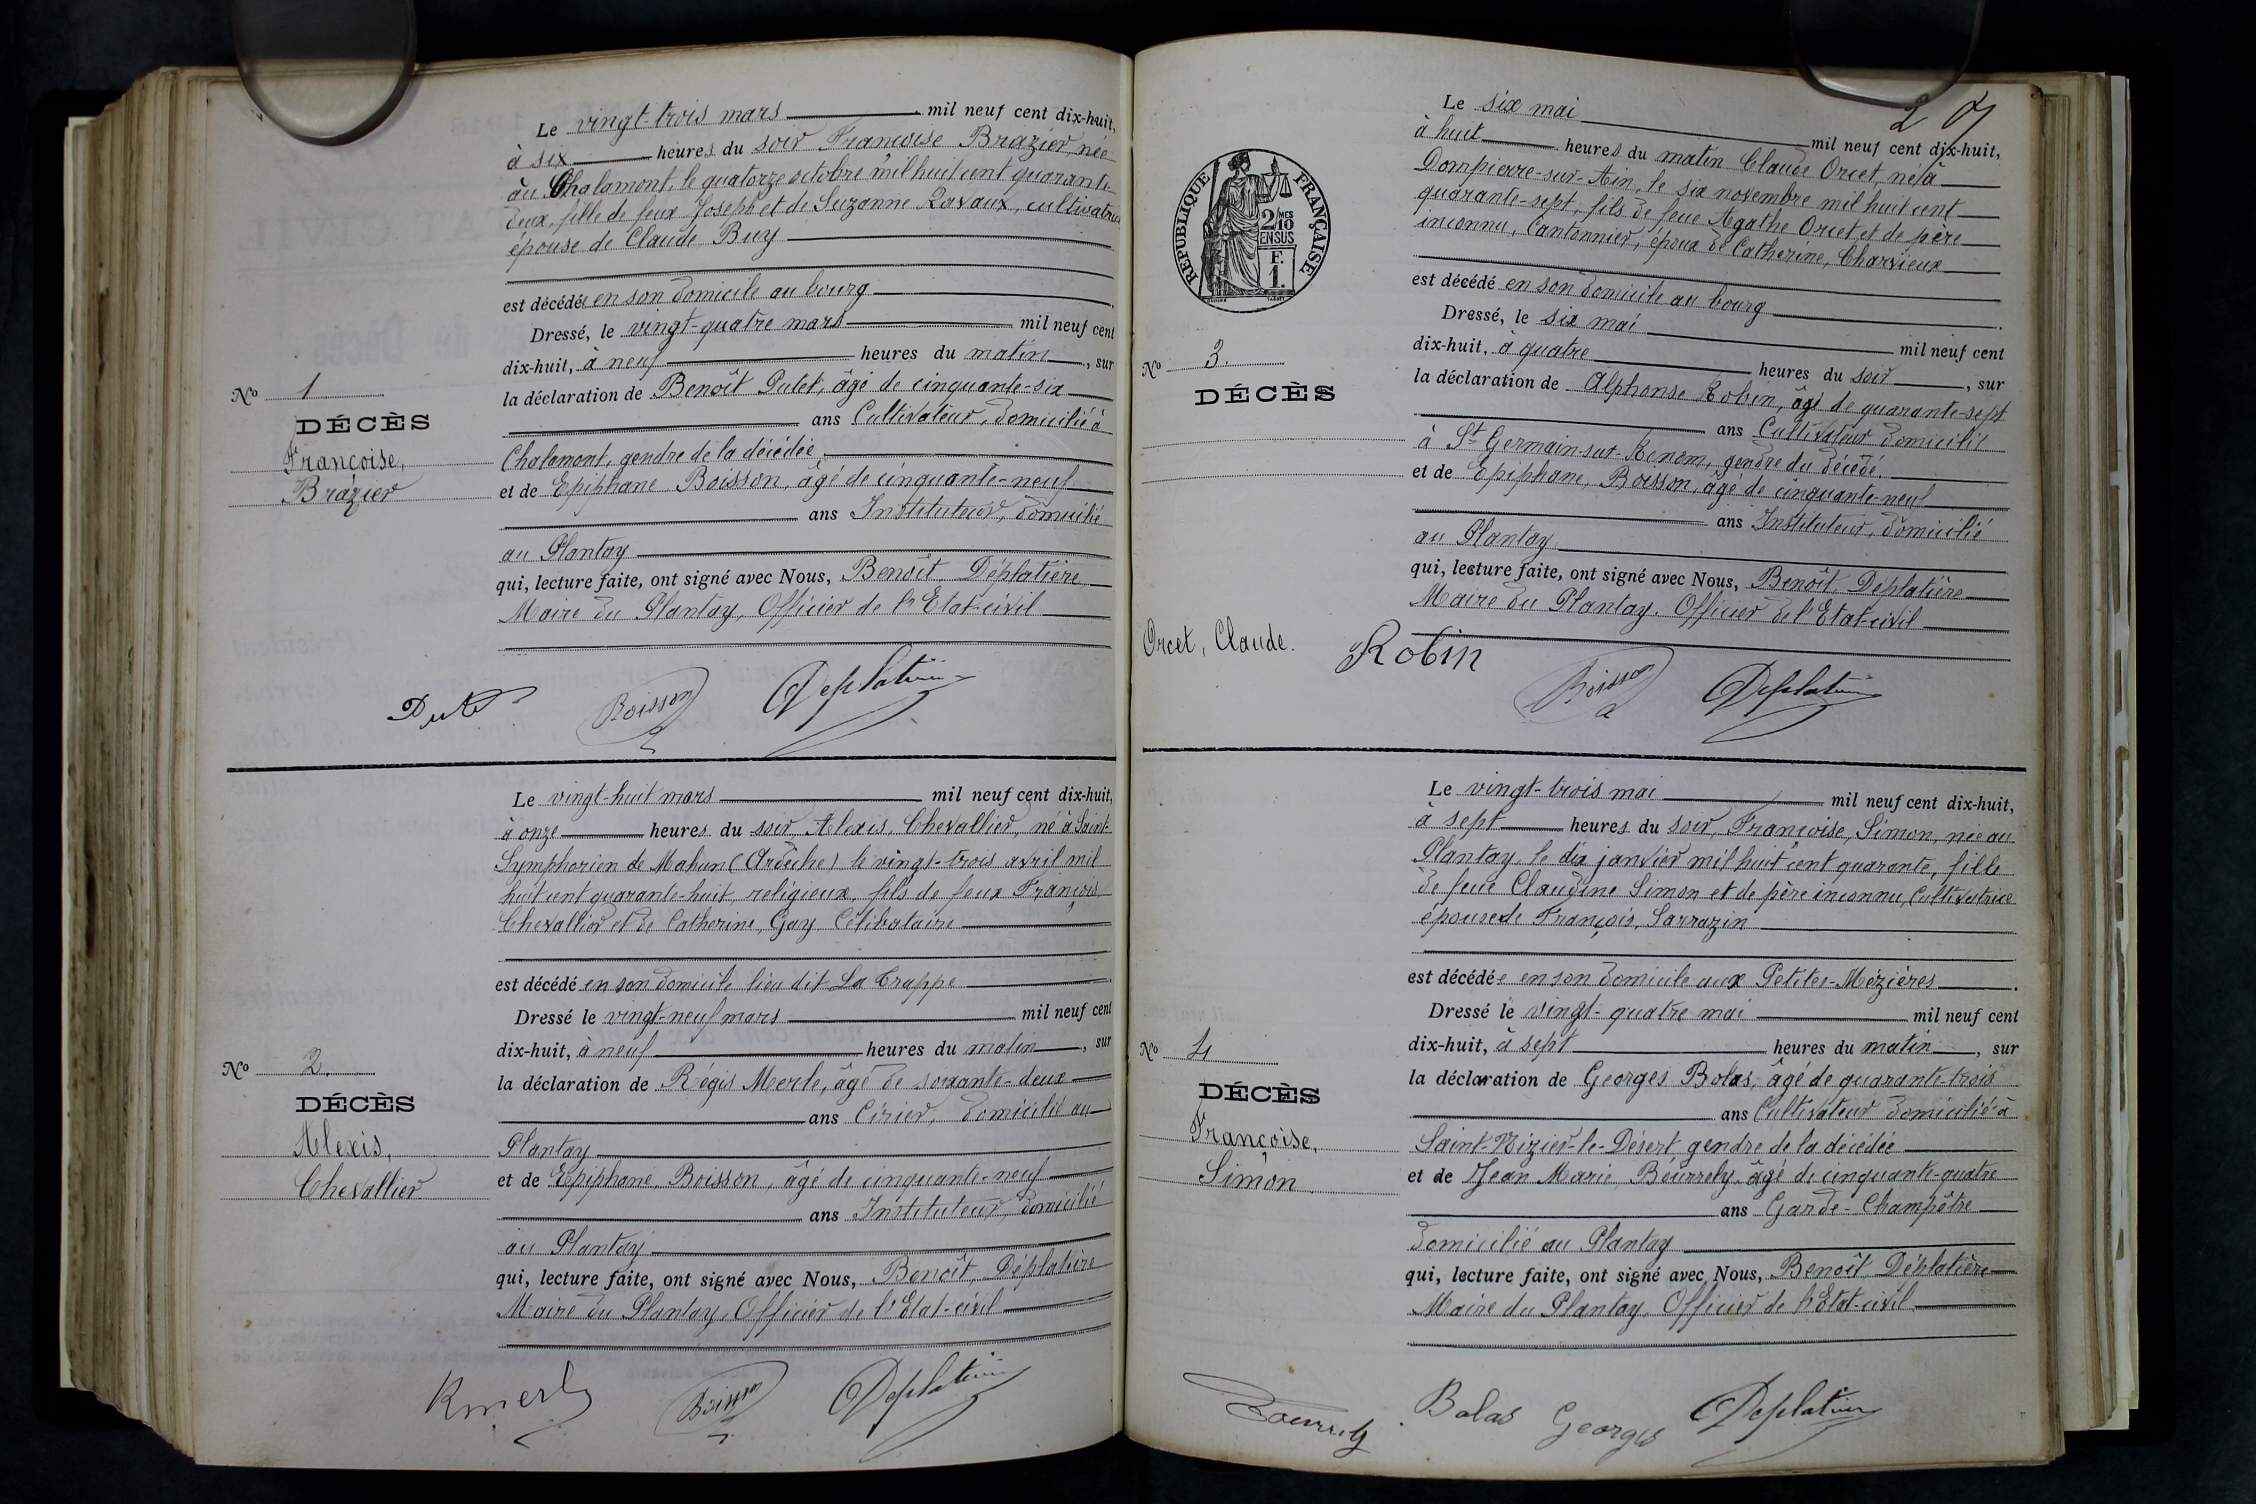 Le vingt-trois mars mil neuf cent dix-huit,
à six heures du soir Françoise Brazier, née
au Chalamont, le quatorze octobre mil huit cent quarante-
deux, fille de feux Joseph et de Suzanne Ravaux, cultivatrice
épouse de Claude Buy
est décédée en son domicile au bourg
Dressé, le vingt-quatre mars mil neuf cent
dix-huit, à neuf heures du matin, sur
la déclaration de Benoît Dutet, âgé de cinquante-six
ans Cultivateur, domicilié à
Chalamont, gendre de la décédée,
et de Epiphane Boisson, âgé de cinquante-neuf
ans Instituteur, domicilié
au Plantay
qui, lecture faite, ont signé avec Nous, Benoît Déplatière
Maire du Plantay, Officier de l'Etat-civil
No 1
DÉCÈS
Françoise,
Brazier
Boisson Deplatière
Le vingt-huit mars mil neuf cent dix-huit,
à onze heures du soir, Alexis, Chevallier, né à Saint-
Symphorien de Mahun (Ardèche) le vingt-trois avril mil
huit cent quarante-huit, religieux, fils de feux François
Chevallier et de Catherine, Gay Célibataire
est décédé en son domicile lieu dit La Trappe
Dressé le vingt-neuf mars mil neuf cent
dix-huit, à neuf heures du matin, sur
la déclaration de Régis Merle, âgé de soixante-deux
ans Cirier, domicilié au
Plantay
et de Epiphane, Boisson, âgé de cinquante-neuf
ans Instituteur, domicilié
au Plantay
qui, lecture faite, ont signé avec Nous, Benoît, Déplatière
Maire du Plantay, Officier de l'Etat-civil
No 2.
DÉCÈS
Alexis,
Chevallier
R merle Boisson Deplatière
2
RÉPUBLIQUE FRANÇAISE
2/10 MES
EN SUS
F.
1.
Le six mai mil neuf cent dix-huit,
à huit heures du matin Claude Orcet, né à
Dompierre-sur-Ain, le six novembre mil huit cent
quarante-sept, fils de feue Agathe Orcet et de père
inconnu, Cantonnier, époux de Catherine, Charvieux
est décédé en son domicile au bourg
Dressé, le six mai mil neuf cent
dix-huit, à quatre heures du soir, sur
la déclaration de Alphonse Robin, âgé de quarante-sept
ans Cultivateur domicilié
à St Germain-sur-Renom, gendre du décédé,
et de Epiphane, Boisson, âgé de cinquante-neuf
ans Instituteur, domicilié
au Plantay
qui, lecture faite, ont signé avec Nous, Benoît Déplatière
Maire du Plantay. Officier de l'Etat-civil
No 3.
DÉCÈS
Orcet, Claude.
Robin Boisson Deplatière
Le vingt-trois mai mil neuf cent dix-huit,
à sept heures du soir, Françoise, Simon, née au
Plantay, le dix janvier mil huit cent quarante, fille
de feue Claudine Simon et de père inconnu, Cultivatrice
épouse de François, Sarrazin
est décédée en son domicile aux Petites-Mézières
Dressé le vingt-quatre mai mil neuf cent
dix-huit, à sept heures du matin, sur
la déclaration de Georges Bolas, âgé de quarante-trois
ans Cultivateur domicilié à
Saint-Nizier-le-Désert, gendre de la décédée
et de Jean Marie Bourrely âgé de cinquante-quatre
ans Garde-Champêtre
domicilié au Plantay
qui, lecture faite, ont signé avec Nous, Benoît Déplatière
Maire du Plantay Officier de l'Etat-civil
No 4
DÉCÈS
Françoise,
Simon
Bourrely Bolas Georges Deplatière